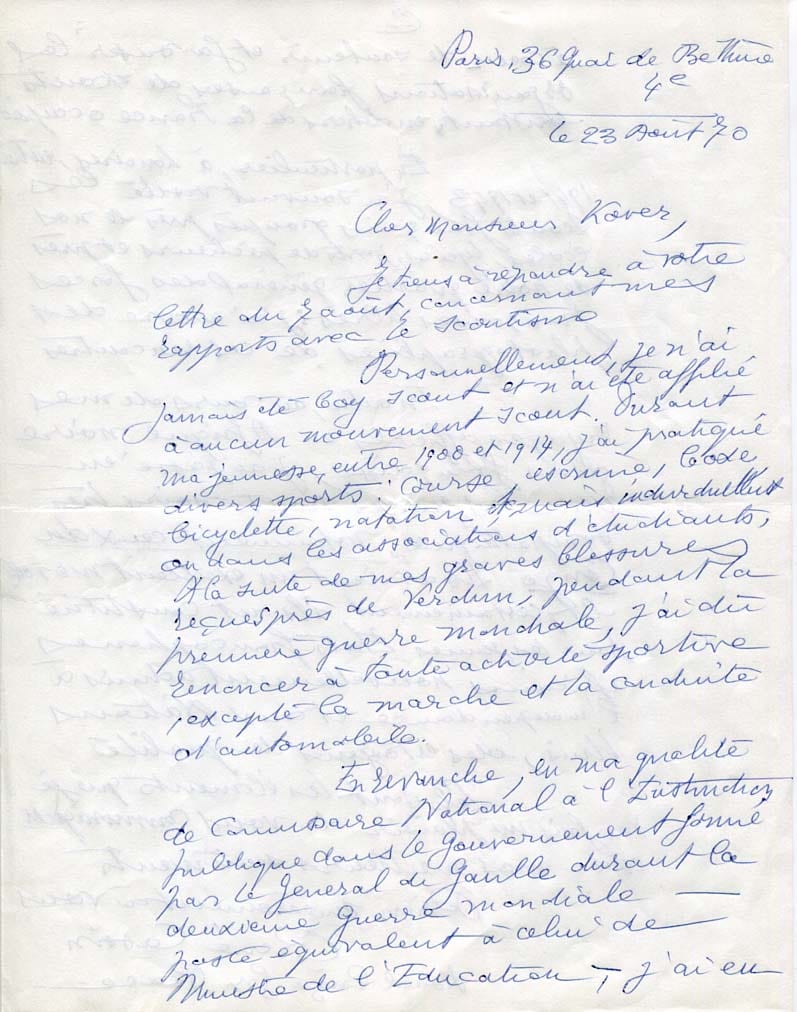 Paris, 36 Quai de Béthune
4e
le 23 Août 70
Cher Monsieur Kover,
Je tiens à répondre à votre
lettre du 7 août, concernant mes
rapports avec le scoutisme
Personnellement, je n'ai
jamais été boy scout et n'ai été affilié
à aucun mouvement scout. Durant
ma jeunesse, entre 1908 et 1914, j'ai pratiqué
divers sports : course, escrime, boxe,
bicyclette, natation, mais individuellement
ou dans les associations d'étudiants,
A la suite de mes graves blessures
reçues près de Verdun, pendant la
première guerre mondiale, j'ai dû
renoncer à toute activité sportive
, excepté la marche et la conduite
d'automobile.
En revanche, en ma qualité
de Commissaire National à l'Instruction
publique dans le Gouvernement formé
par le Général de Gaulle durant la
deuxième guerre mondiale —
poste équivalent à celui de
Ministre de l'Education —, j'ai eu